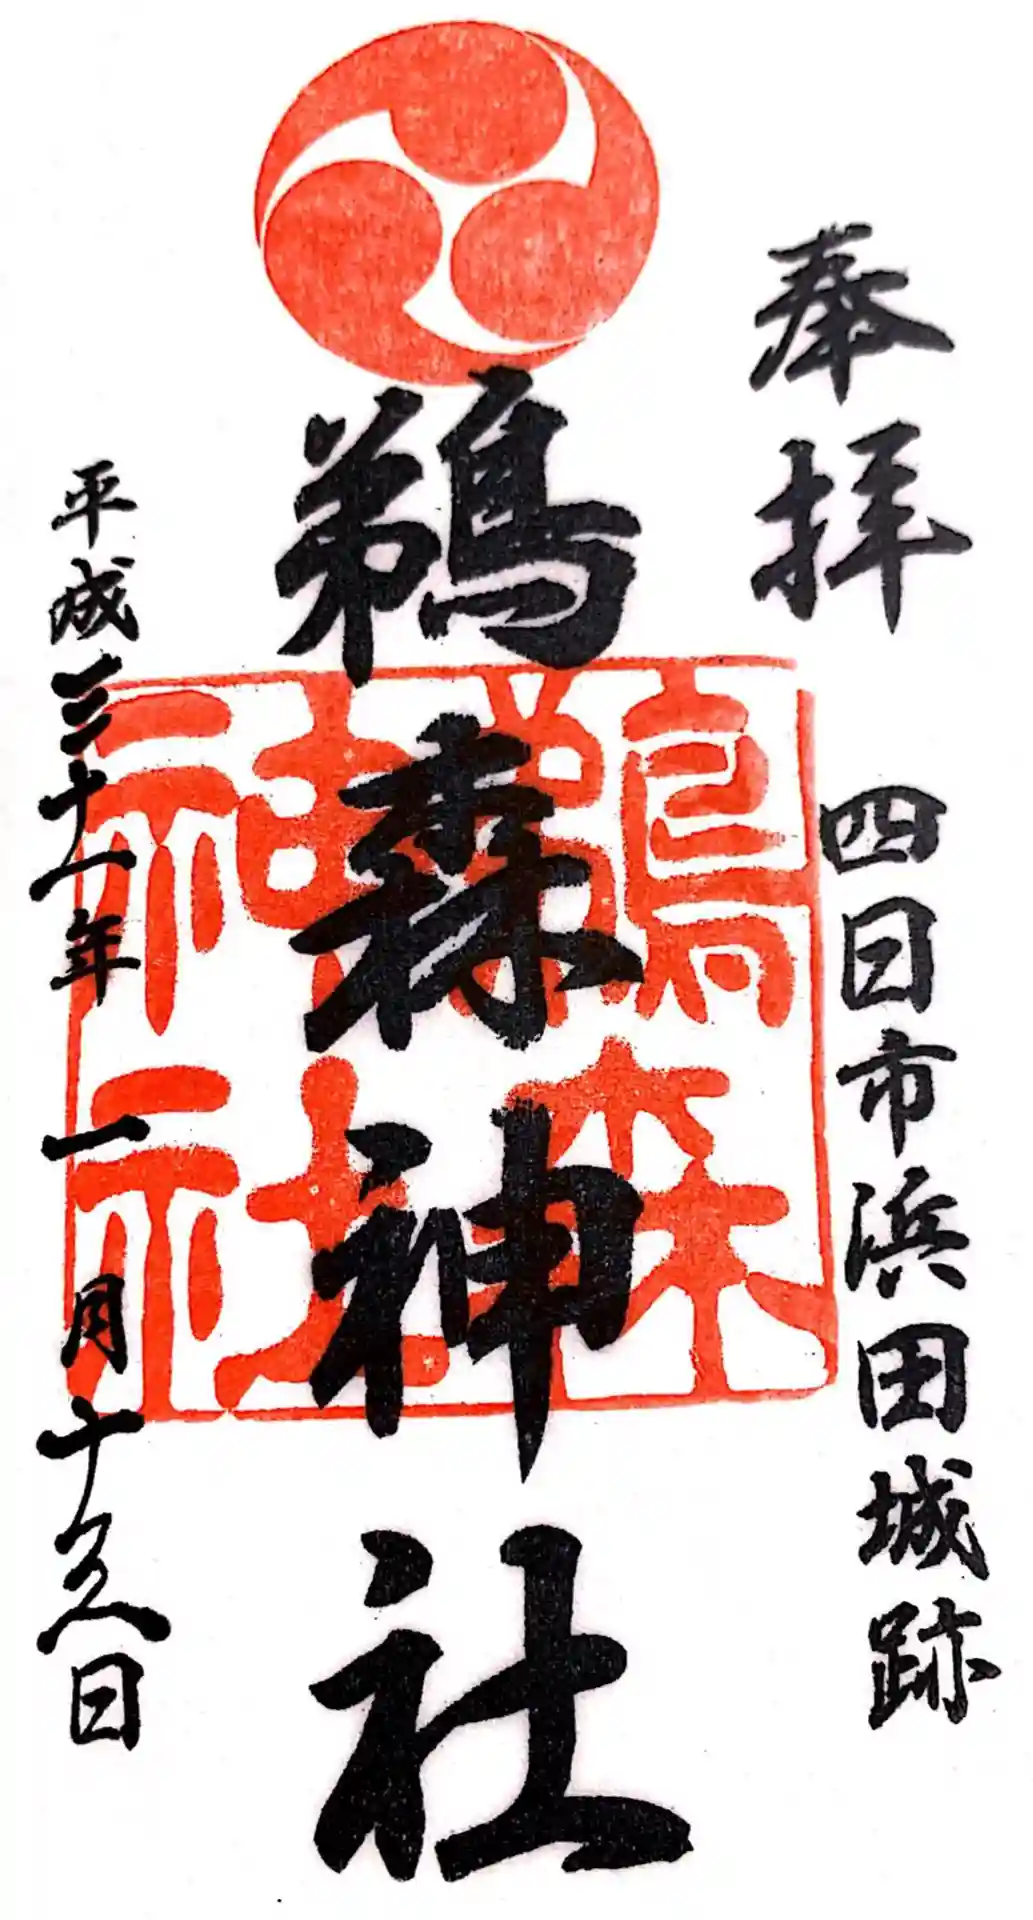 奉拝
四日市浜田城跡
鵜森神社
鵜森
神社
平成三十一年一月十六日